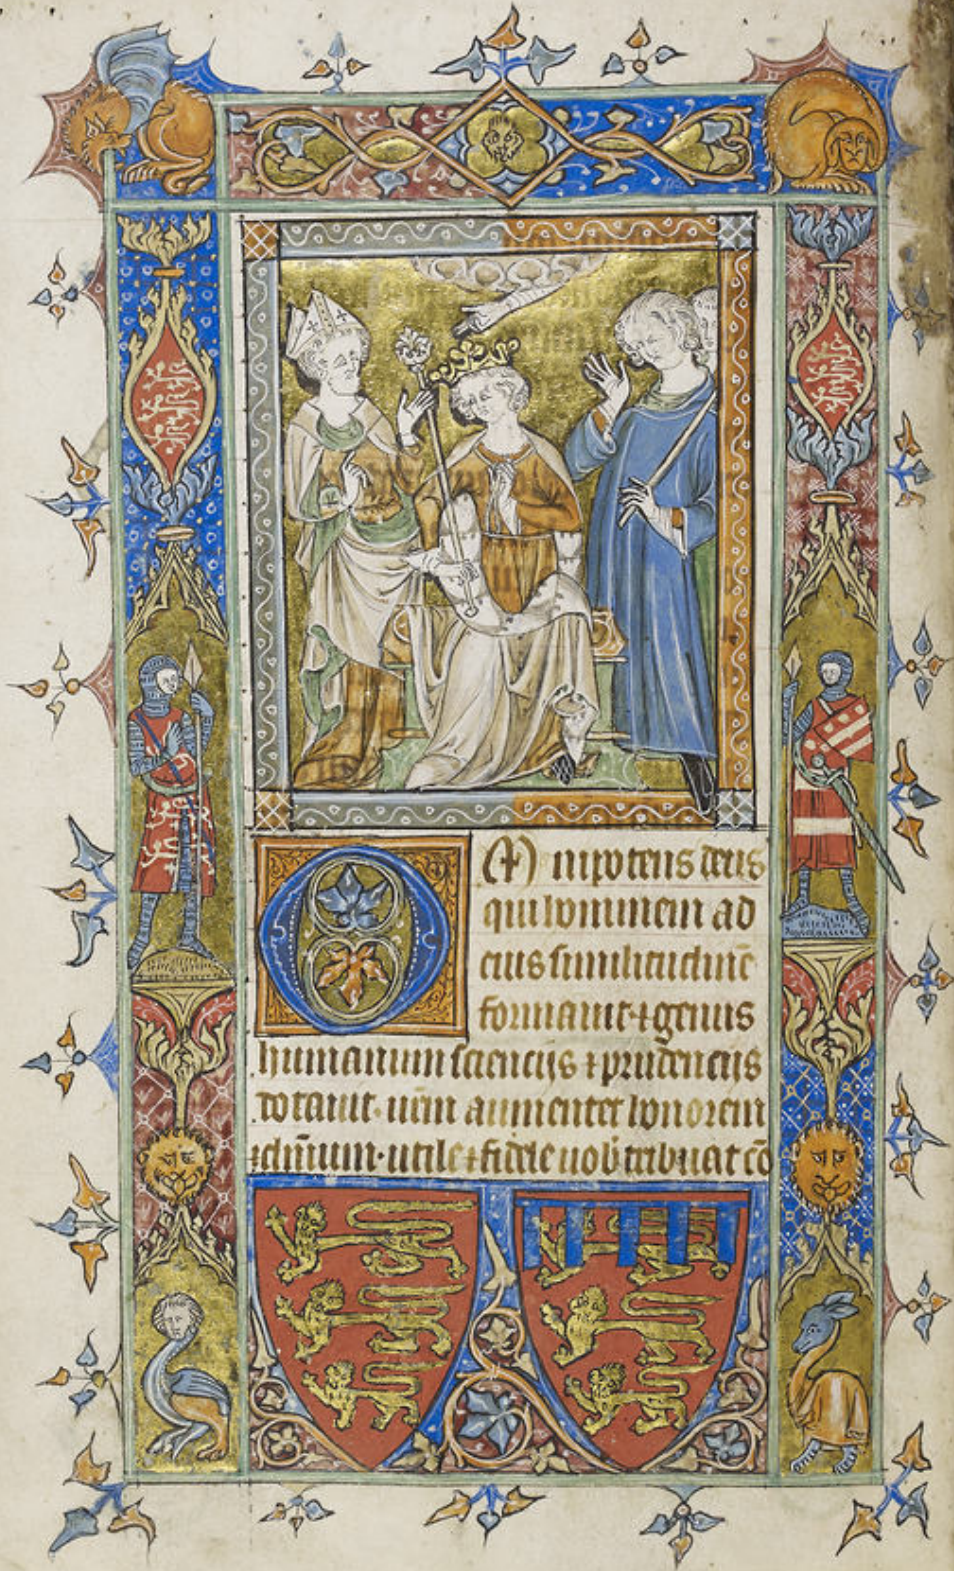 Mnipotens deus
qui hominem ad
eius similitudinē
formauit ⁊ genus
humanum scienciis ⁊ prudenciis
dotauit. uerū aumentet honorem
utile ⁊ fidele uob tribuat cō